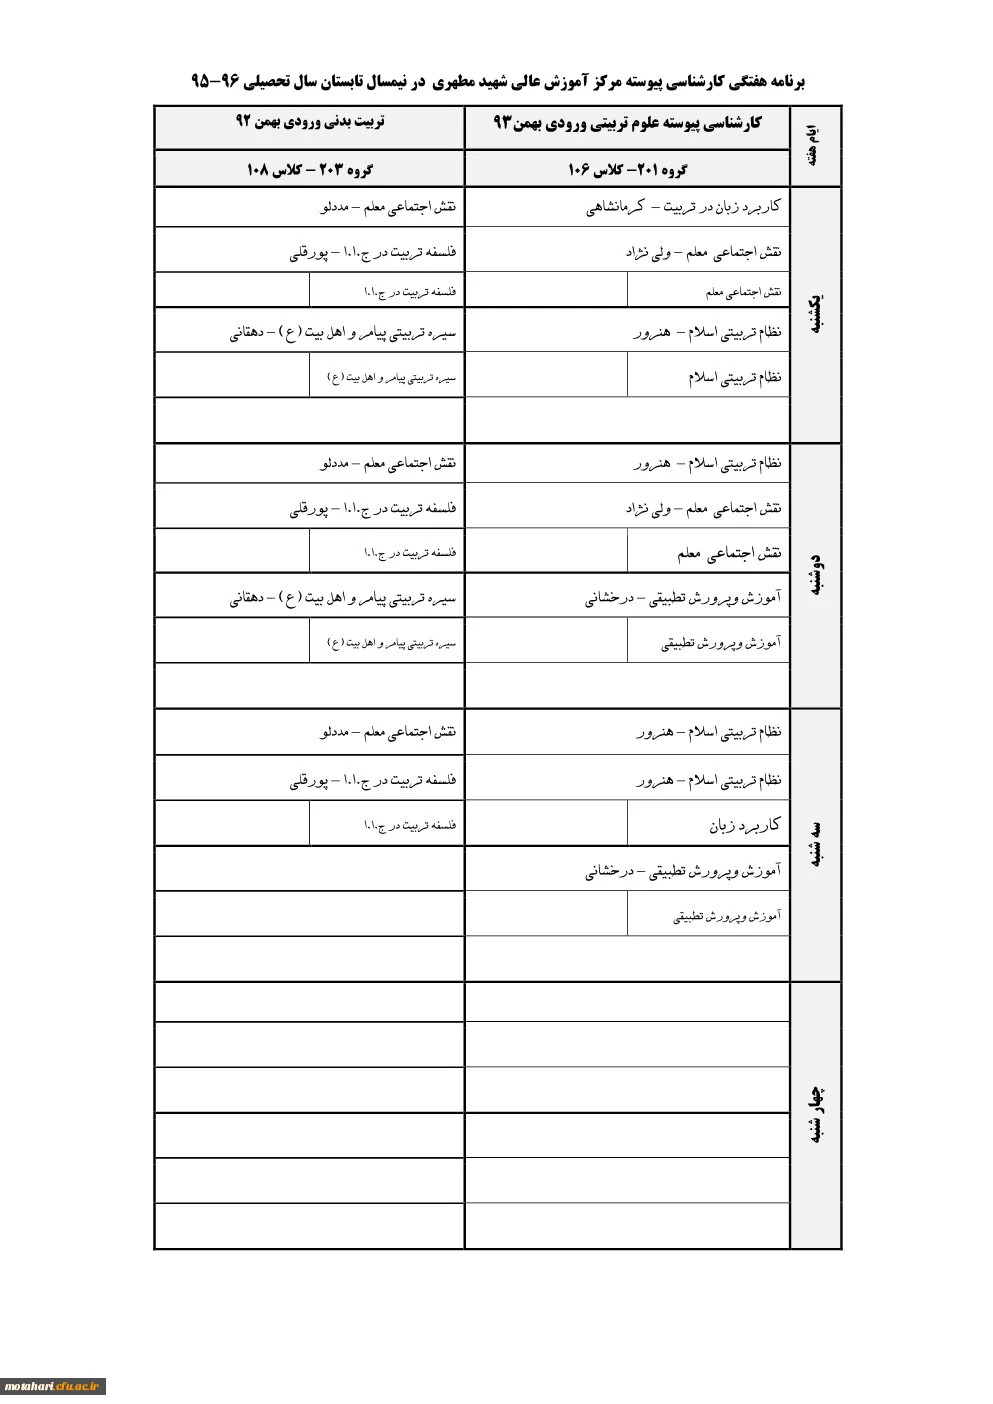 برنامه هفتگی کارشناسی پیوسته مرکز آموزش عالی شهید مطهری در نیمسال تابستان سال تحصیلی ۹۶-۹۵
ایام هفته
کارشناسی پیوسته علوم تربیتی ورودی بهمن۹۳
تربیت بدنی ورودی بهمن ۹۲
گروه ۲۰۱- کلاس ۱۰۶
گروه ۲۰۳ - کلاس ۱۰۸
یکشنبه
کاربرد زبان در تربیت - کرمانشاهی
نقش اجتماعی معلم - مددلو
نقش اجتماعی معلم - ولی نژاد
فلسفه تربیت در ج.ا.ا - پورقلی
نقش اجتماعی معلم
فلسفه تربیت در ج.ا.ا
نظام تربیتی اسلام - هنرور
سیره تربیتی پیامر و اهل بیت (ع) - دهقانی
نظام تربیتی اسلام
سیره تربیتی پیامر و اهل بیت (ع)
دوشنبه
نظام تربیتی اسلام - هنرور
نقش اجتماعی معلم - مددلو
نقش اجتماعی معلم - ولی نژاد
فلسفه تربیت در ج.ا.ا - پورقلی
نقش اجتماعی معلم
فلسفه تربیت در ج.ا.ا
آموزش وپرورش تطبیقی - درخشانی
سیره تربیتی پیامر و اهل بیت (ع) - دهقانی
آموزش وپرورش تطبیقی
سیره تربیتی پیامر و اهل بیت (ع)
سه شنبه
نظام تربیتی اسلام - هنرور
نقش اجتماعی معلم - مددلو
نظام تربیتی اسلام - هنرور
فلسفه تربیت در ج.ا.ا - پورقلی
کاربرد زبان
فلسفه تربیت در ج.ا.ا
آموزش وپرورش تطبیقی - درخشانی
آموزش وپرورش تطبیقی
چهار شنبه
motahari.cfu.ac.ir